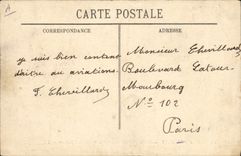 A
CARTE POSTALE
CORRESPONDANCE
ADRESSE
je suis bien content
d'être au aviations
F. Thevillard
Monsieur Thevillard
Boulevard Latour-
Moubourg
N° 102
Paris